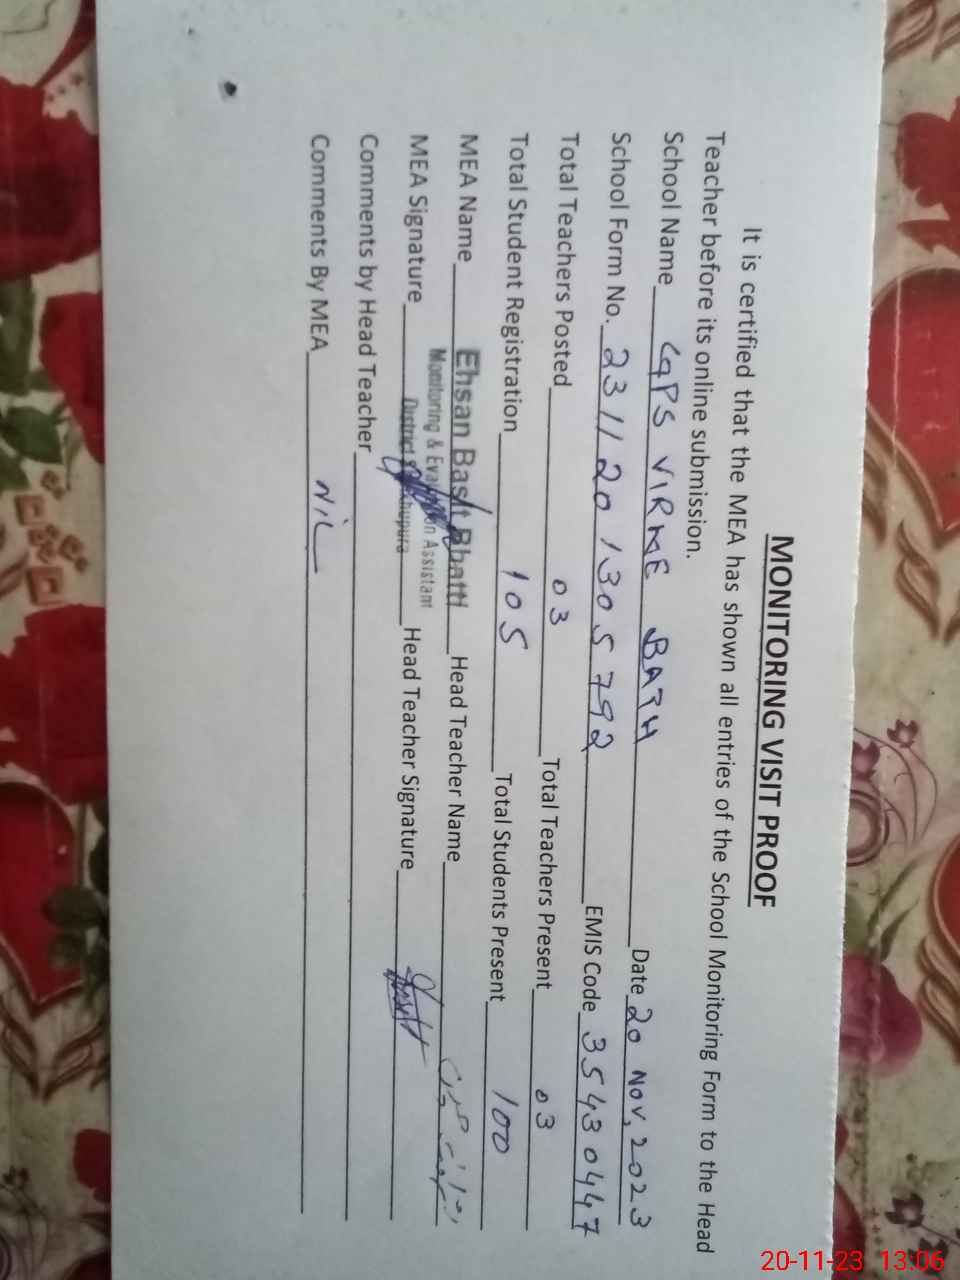 MONITORING VISIT PROOF
It is certified that the MEA has shown all entries of the School Monitoring Form to the Head
Teacher before its online submission.
School Name GPS VIRME BATH Date 20 Nov, 2023
School Form No. 2311201305792 EMIS Code 35430447
Total Teachers Posted 03 Total Teachers Present 03
Total Student Registration 105 Total Students Present 100
MEA Name Ehsan Basit Bhatti Head Teacher Name
Monitoring & Evaluation Assistant
District Sheikhupura
MEA Signature Head Teacher Signature
Comments by Head Teacher
Comments By MEA NIL
20-11-23 13:06